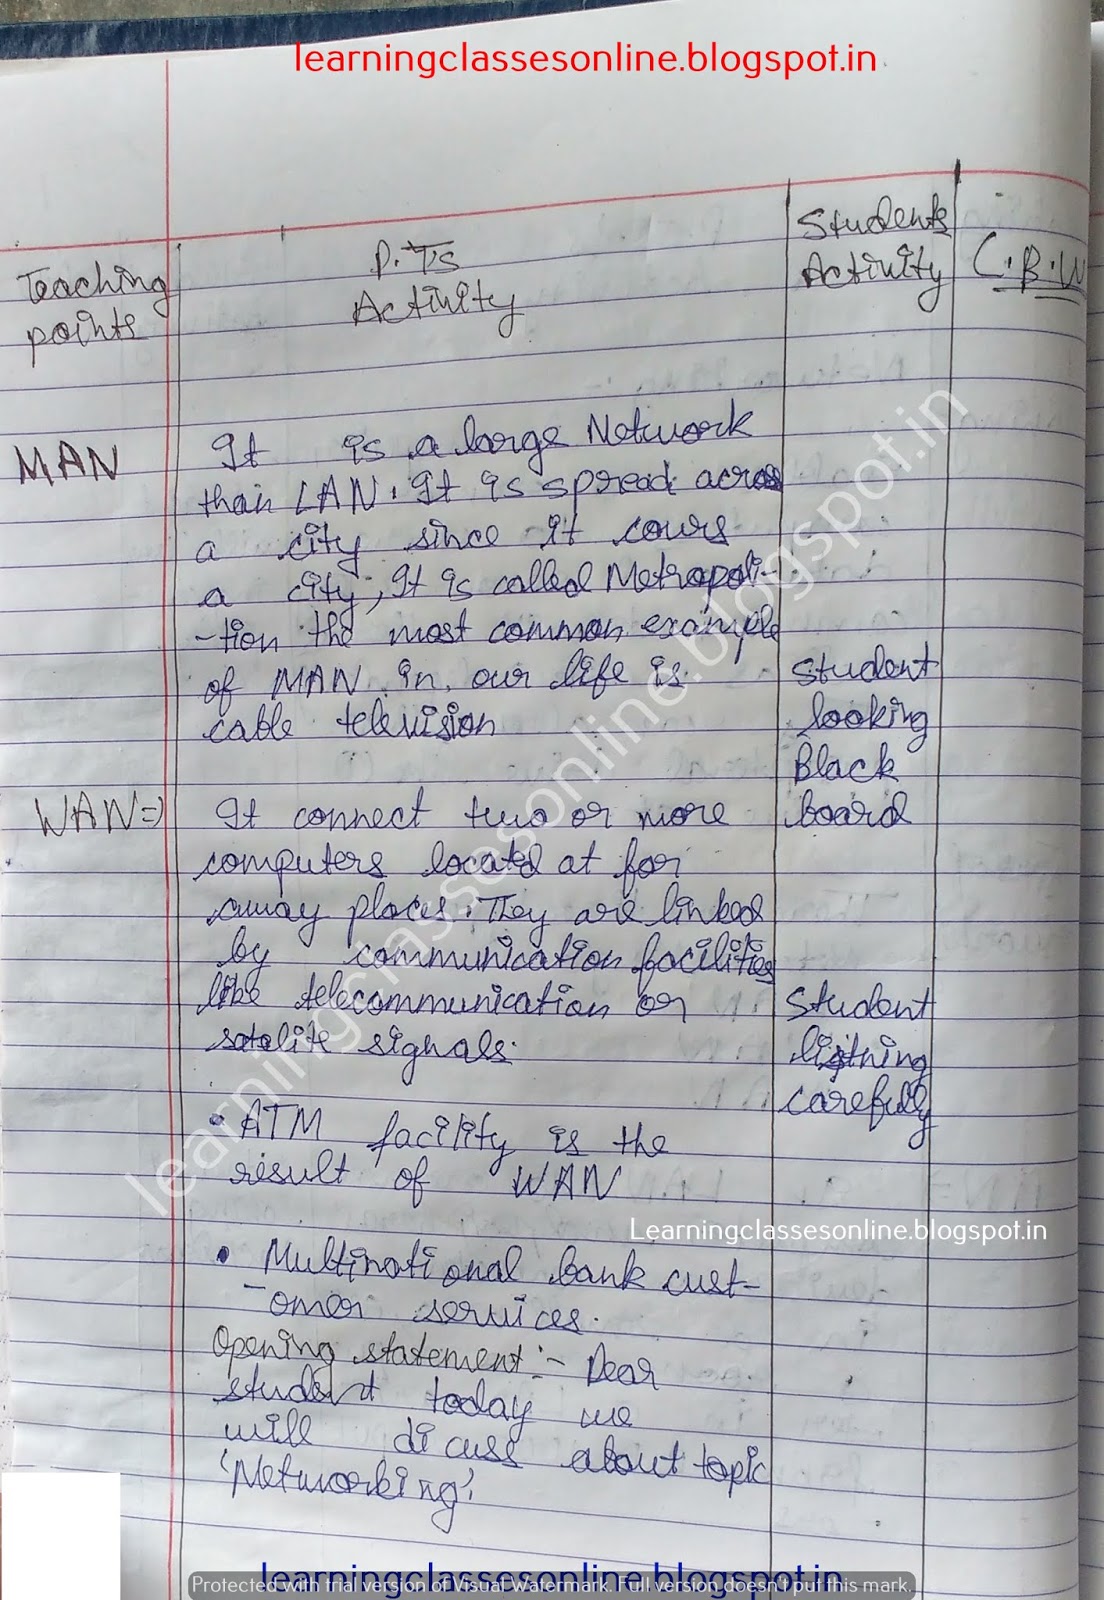 learningclassesonline.blogspot.in
Teaching
points
P.T's
Activity
Students
Activity
C.B.W
MAN
It is a large Network
than LAN. It is spread across
a city since it cours
a city, It is called Metropoli-
-tion the most common example
of MAN in our life is
cable television
Student
looking
Black
board
WAN⇒
It connect two or more
computers located at for
away places. They are linked
by communication facilities
like telecommunication or
satalite signals.
Student
listning
carefully
• ATM facility is the
result of WAN
Learningclassesonline.blogspot.in
• Multinational bank cust-
-omer services.
Opening statement :- Dear
student today we
will dicuss about topic
'Networking'
learningclassesonline.blogspot.in
learningclassesonline.blogspot.in
Protected with trial version of Visual Watermark. Full version doesn't put this mark.